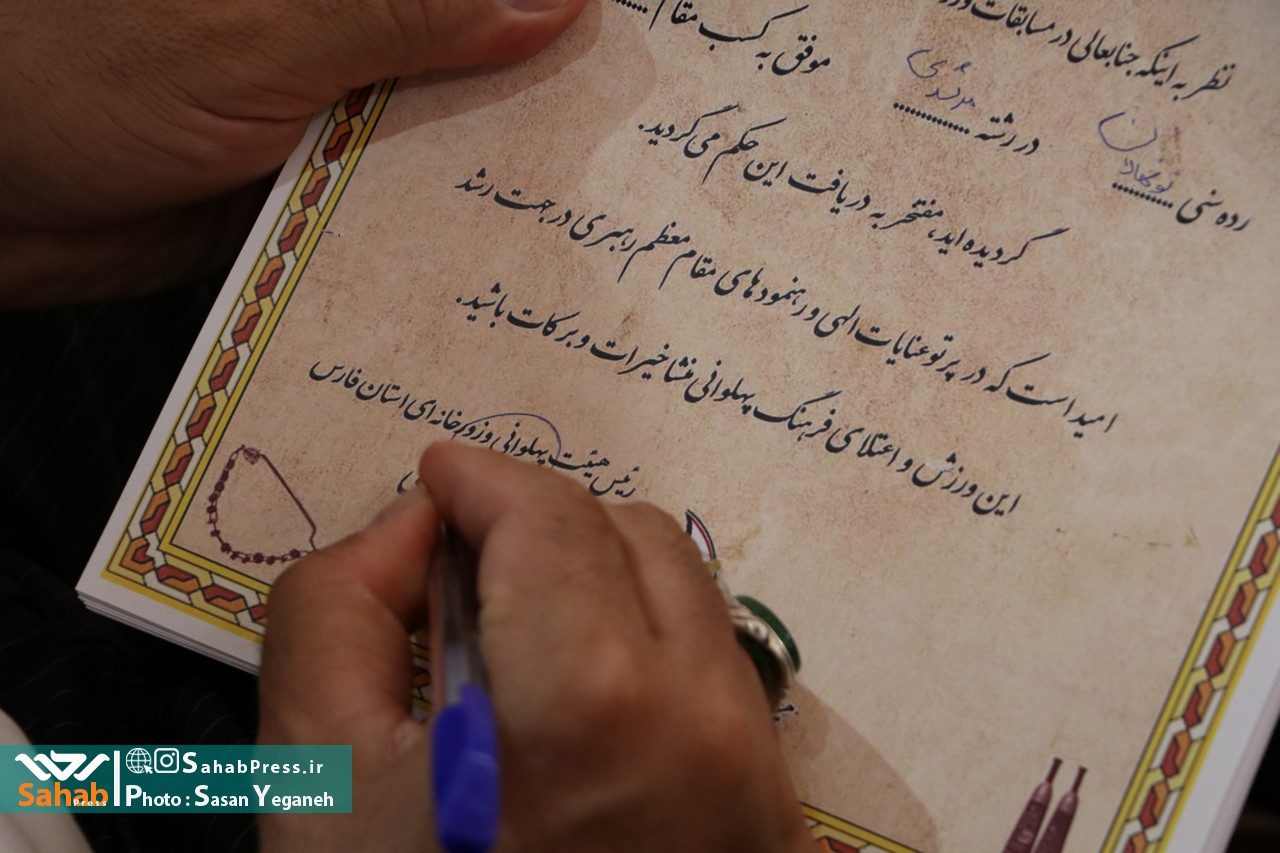 نظر به اینکه جنابعالی در مسابقات
رده سنی نونهالان در رشته مرشدی موفق به کسب مقام
گردیده اید، مفتخر به دریافت این حکم می گردید.
امید است که در پرتو عنایات الهی و رهنمودهای مقام معظم رهبری در جهت رشد
این ورزش و اعتلای فرهنگ پهلوانی منشا خیرات و برکات باشید.
رئیس هیئت پهلوانی وزورخانه ای استان فارس
SahabPress.ir
Sahab Press
Photo : Sasan Yeganeh